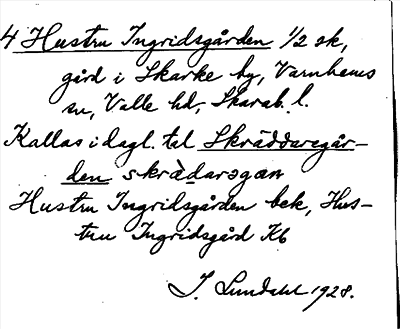 4 Hustru Ingridsgården 1/2 sk,
gård i Skarke by, Varnhems
sn, Valle hd, Skarab. l.
Kallas i dagl. tal Skräddaregår-
den skrädarəgan
Hustru Ingridsgården bek, Hus-
tru Ingridsgård Kb
J. Lundahl 1928.